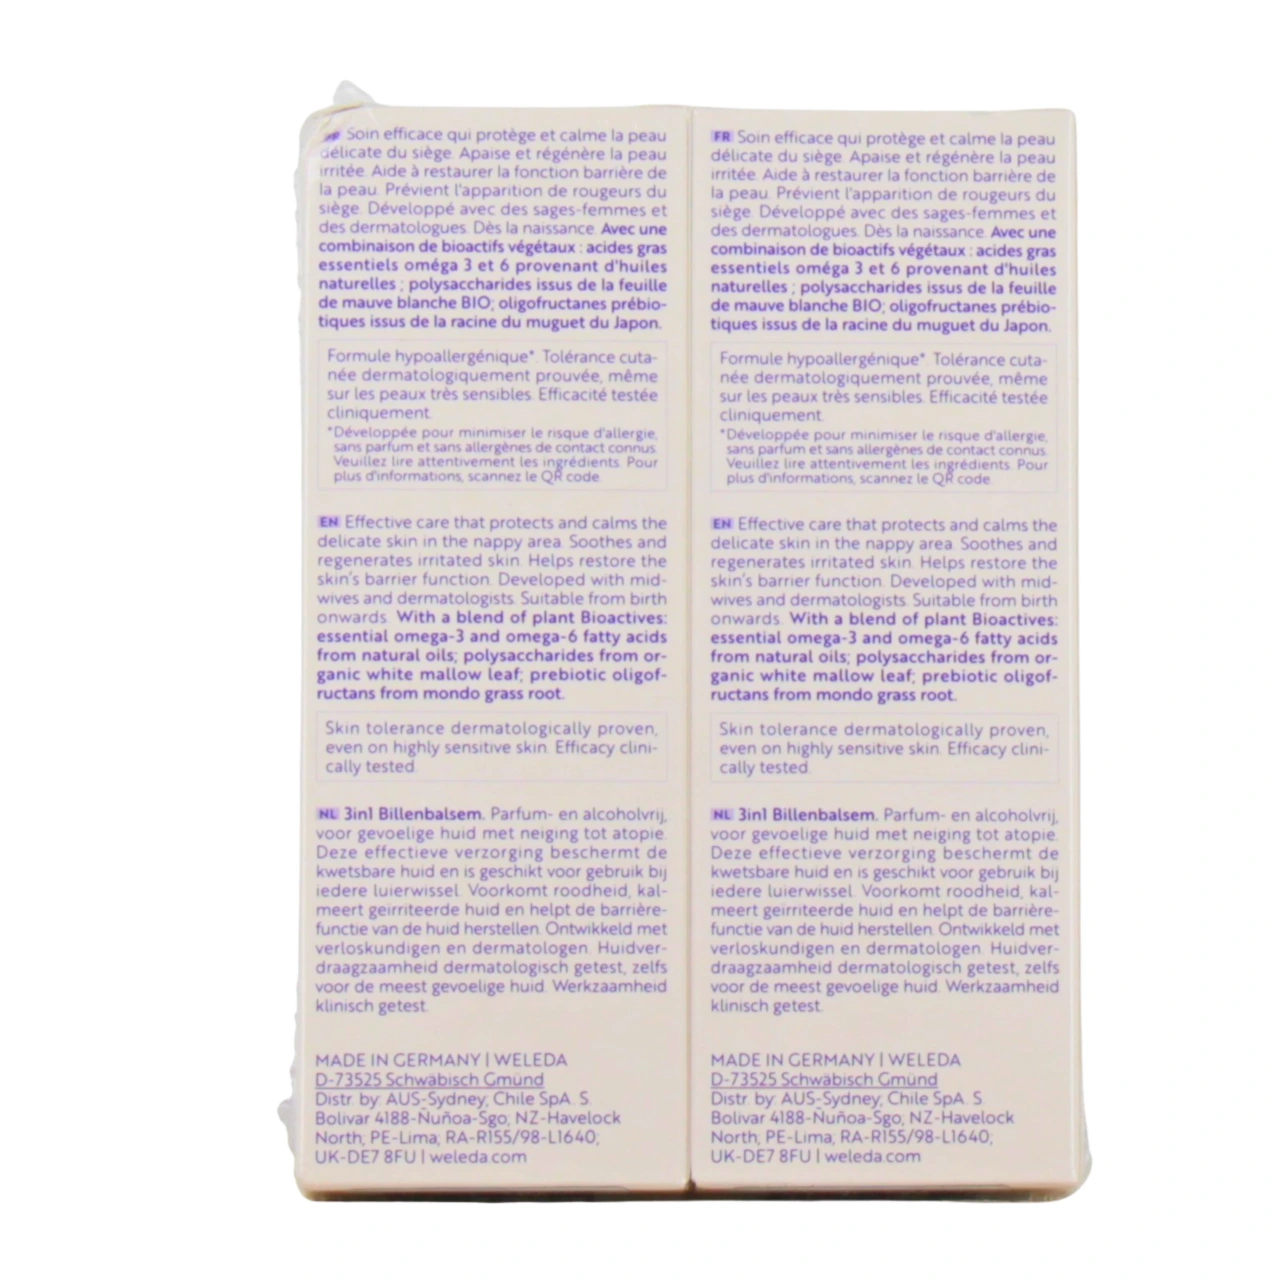 Soin efficace qui protège et calme la peau
délicate du siège. Apaise et régénère la peau
irritée. Aide à restaurer la fonction barrière de
la peau. Prévient l'apparition de rougeurs du
siège. Développé avec des sages-femmes et
des dermatologues. Dès la naissance. Avec une
combinaison de bioactifs végétaux : acides gras
essentiels oméga 3 et 6 provenant d'huiles
naturelles ; polysaccharides issus de la feuille
de mauve blanche BIO; oligofructanes prébio-
tiques issus de la racine du muguet du Japon.
Formule hypoallergénique*. Tolérance cuta-
née dermatologiquement prouvée, même
sur les peaux très sensibles. Efficacité testée
cliniquement.
*Développée pour minimiser le risque d'allergie,
sans parfum et sans allergènes de contact connus.
Veuillez lire attentivement les ingrédients. Pour
plus d'informations, scannez le QR code.
EN Effective care that protects and calms the
delicate skin in the nappy area. Soothes and
regenerates irritated skin. Helps restore the
skin's barrier function. Developed with mid-
wives and dermatologists. Suitable from birth
onwards. With a blend of plant Bioactives:
essential omega-3 and omega-6 fatty acids
from natural oils; polysaccharides from or-
ganic white mallow leaf; prebiotic oligof-
ructans from mondo grass root.
Skin tolerance dermatologically proven,
even on highly sensitive skin. Efficacy clini-
cally tested.
NL 3in1 Billenbalsem. Parfum- en alcoholvrij,
voor gevoelige huid met neiging tot atopie.
Deze effectieve verzorging beschermt de
kwetsbare huid en is geschikt voor gebruik bij
iedere luierwissel. Voorkomt roodheid, kal-
meert geïrriteerde huid en helpt de barrière-
functie van de huid herstellen. Ontwikkeld met
verloskundigen en dermatologen. Huidver-
draagzaamheid dermatologisch getest, zelfs
voor de meest gevoelige huid. Werkzaamheid
klinisch getest.
MADE IN GERMANY | WELEDA
D-73525 Schwäbisch Gmünd
Distr. by: AUS-Sydney; Chile SpA. S.
Bolivar 4188-Ñuñoa-Sgo; NZ-Havelock
North; PE-Lima; RA-R155/98-L1640;
UK-DE7 8FU | weleda.com
FR Soin efficace qui protège et calme la peau
délicate du siège. Apaise et régénère la peau
irritée. Aide à restaurer la fonction barrière de
la peau. Prévient l'apparition de rougeurs du
siège. Développé avec des sages-femmes et
des dermatologues. Dès la naissance. Avec une
combinaison de bioactifs végétaux : acides gras
essentiels oméga 3 et 6 provenant d'huiles
naturelles ; polysaccharides issus de la feuille
de mauve blanche BIO; oligofructanes prébio-
tiques issus de la racine du muguet du Japon.
Formule hypoallergénique*. Tolérance cuta-
née dermatologiquement prouvée, même
sur les peaux très sensibles. Efficacité testée
cliniquement.
*Développée pour minimiser le risque d'allergie,
sans parfum et sans allergènes de contact connus.
Veuillez lire attentivement les ingrédients. Pour
plus d'informations, scannez le QR code.
EN Effective care that protects and calms the
delicate skin in the nappy area. Soothes and
regenerates irritated skin. Helps restore the
skin's barrier function. Developed with mid-
wives and dermatologists. Suitable from birth
onwards. With a blend of plant Bioactives:
essential omega-3 and omega-6 fatty acids
from natural oils; polysaccharides from or-
ganic white mallow leaf; prebiotic oligof-
ructans from mondo grass root.
Skin tolerance dermatologically proven,
even on highly sensitive skin. Efficacy clini-
cally tested.
NL 3in1 Billenbalsem. Parfum- en alcoholvrij,
voor gevoelige huid met neiging tot atopie.
Deze effectieve verzorging beschermt de
kwetsbare huid en is geschikt voor gebruik bij
iedere luierwissel. Voorkomt roodheid, kal-
meert geïrriteerde huid en helpt de barrière-
functie van de huid herstellen. Ontwikkeld met
verloskundigen en dermatologen. Huidver-
draagzaamheid dermatologisch getest, zelfs
voor de meest gevoelige huid. Werkzaamheid
klinisch getest.
MADE IN GERMANY | WELEDA
D-73525 Schwäbisch Gmünd
Distr. by: AUS-Sydney; Chile SpA. S.
Bolivar 4188-Ñuñoa-Sgo; NZ-Havelock
North; PE-Lima; RA-R155/98-L1640;
UK-DE7 8FU | weleda.com